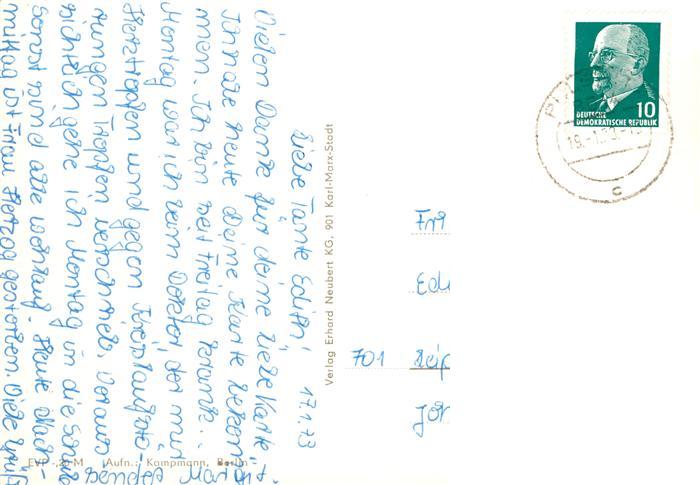 Liebe Tante Edith! 17.1.73
Vielen Dank für deine liebe Karte.
Ich habe heute Deine Karte bekom-
men. Ich bin seit Freitag krank.
Montag war ich beim Doktor, der mir
Herztropfen und gegen
rungen Tropfen verschrieb. Voraus-
sichtlich gehe ich Montag in die Schule
Sonst sind alle wohlauf. Heute Nach-
mittag ist Frau Herzog gestorben. Viele Grüß
sendet
EVP -,20 M (Aufn.: Kampmann, Berlin
Verlag Erhard Neubert KG, 901 Karl-Marx-Stadt
10
DEUTSCHE
DEMOKRATISCHE REPUBLIK
19.-1.73.
c
Edi
701 Leip